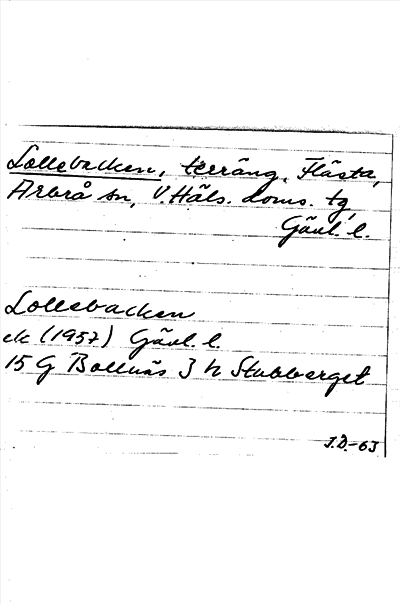 Lollebacken, terräng, Flästa,
Arbrå sn, V. Häls. doms. tg,
Gävl. l.
Lollebacken
ek (1957) Gävl. l.
15 G Bollnäs 3 h Stubberget
J.D.-63